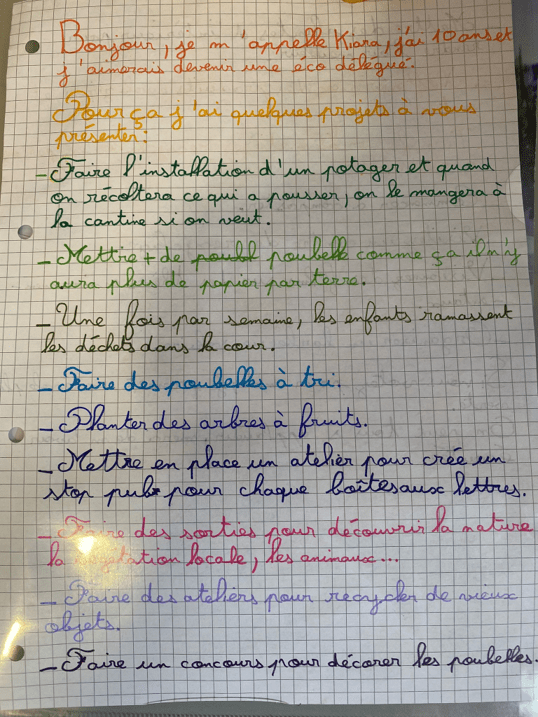 Bonjour, je m'appelle Kiara, j'ai 10 ans et
j'aimerais devenir une éco délégué.
Pour ça j'ai quelques projets à vous
présenter:
- Faire l'installation d'un potager et quand
on récoltera ce qui a pousser, on le mangera à
la cantine si on veut.
- Mettre + de poubelle comme ça il n'y
aura plus de papier par terre.
- Une fois par semaine, les enfants ramassent
les déchets dans la cour.
- Faire des poubelles à tri.
- Planter des arbres à fruits.
- Mettre en place un atelier pour crée un
stop pub pour chaque boîtes aux lettres.
- Faire des sorties pour découvrir la nature
la locale, les animaux...
- Faire des ateliers pour recycler de vieux
objets.
- Faire un concours pour décorer les poubelles.